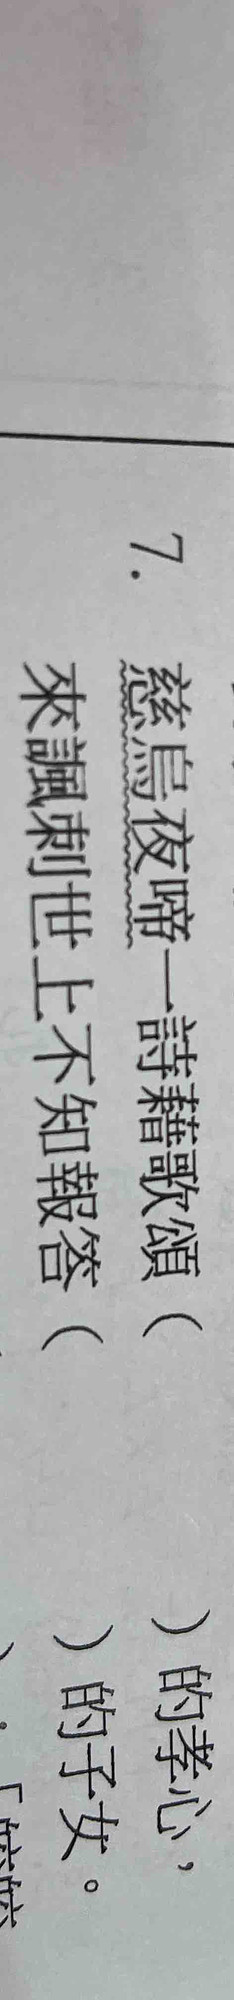 7. 慈烏夜啼一詩藉歌頌（　　　　）的孝心，
來諷刺世上不知報答（　　　　）的子女。